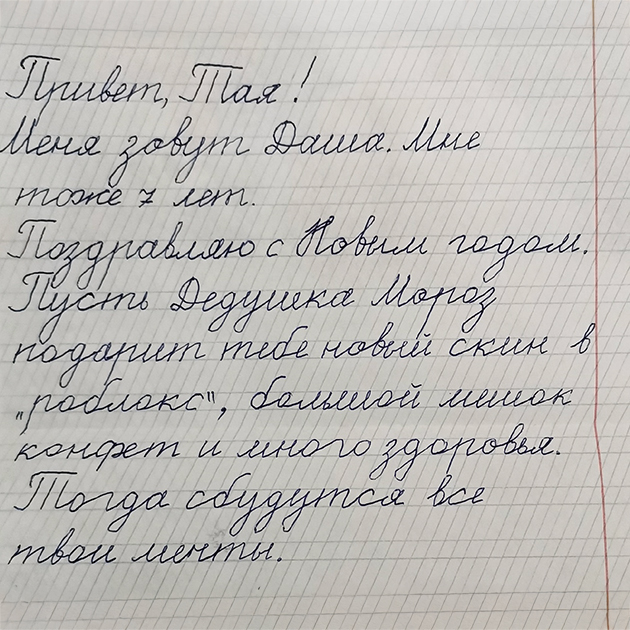 Привет, Тая!
Меня зовут Даша. Мне
тоже 7 лет.
Поздравляю с Новым годом.
Пусть Дедушка Мороз
подарит тебе новый скин в
„роблокс", большой мешок
конфет и много здоровья.
Тогда сбудутся все
твои мечты.